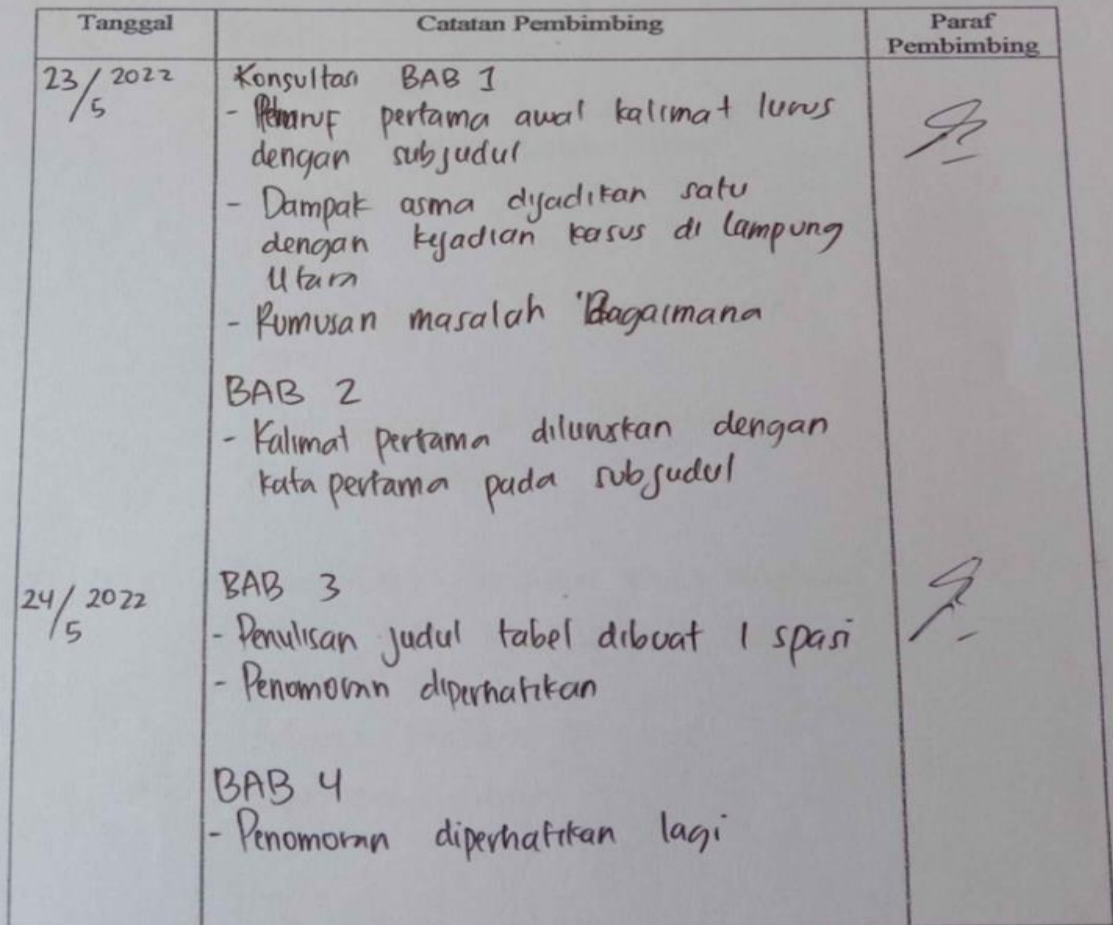 Tanggal
Catatan Pembimbing
Paraf
Pembimbing
23/5 2022
Konsultasi BAB 1
- pertama awal kalimat lurus
dengan subjudul
- Dampak asma dijadikan satu
dengan kejadian kasus di lampung
Utara
- Rumusan masalah Bagaimana
BAB 2
- Kalimat pertama diluruskan dengan
kata pertama pada subjudul
24/5 2022
BAB 3
- Penulisan judul tabel dibuat 1 spasi
- Penomoran diperhatikan
BAB 4
- Penomoran diperhatikan lagi